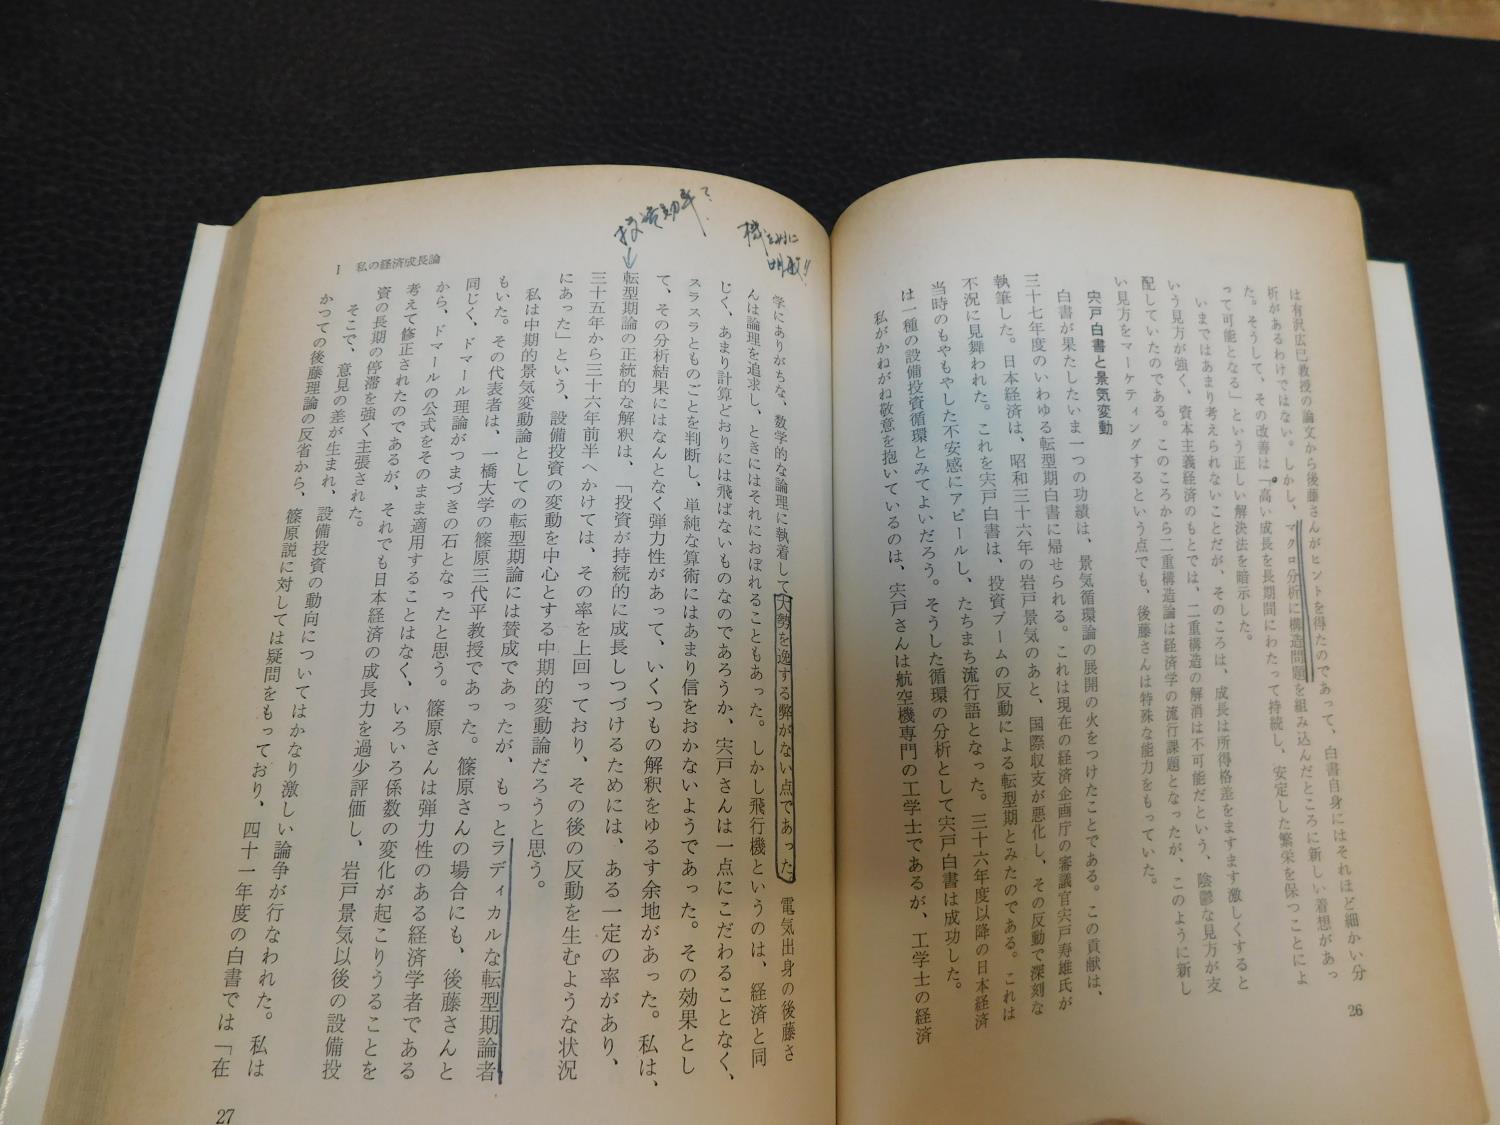 は有沢広巳教授の論文から後藤さんがヒントを得たのであって、白書自身にはそれほど細かい分
析があるわけではない。しかし、マクロ分析に構造問題を組み込んだところに新しい着想があっ
た。そうして、その改善は「高い成長を長期間にわたって持続し、安定した繁栄を保つことによ
って可能となる」という正しい解決法を暗示した。
いまではあまり考えられないことだが、そのころは、成長は所得格差をますます激しくすると
いう見方が強く、資本主義経済のもとでは、二重構造の解消は不可能だという、陰鬱な見方が支
配していたのである。このころから二重構造論は経済学の流行課題となったが、このように新し
い見方をマーケティングするという点でも、後藤さんは特殊な能力をもっていた。
宍戸白書と景気変動
白書が果たしたいま一つの功績は、景気循環論の展開の火をつけたことである。この貢献は、
三十七年度のいわゆる転型期白書に帰せられる。これは現在の経済企画庁の審議官宍戸寿雄氏が
執筆した。日本経済は、昭和三十六年の岩戸景気のあと、国際収支が悪化し、その反動で深刻な
不況に見舞われた。これを宍戸白書は、投資ブームの反動による転型期とみたのである。これは
当時のもやもやした不安感にアピールし、たちまち流行語となった。三十六年度以降の日本経済
は一種の設備投資循環とみてよいだろう。そうした循環の分析として宍戸白書は成功した。
私がかねがね敬意を抱いているのは、宍戸さんは航空機専門の工学士であるが、工学士の経済
26
学にありがちな、数学的な論理に執着して大勢を逸する弊がない点であった。電気出身の後藤さ
んは論理を追求し、ときにはそれにおぼれることもあった。しかし飛行機というのは、経済と同
じく、あまり計算どおりには飛ばないものなのであろうか、宍戸さんは一点にこだわることなく、
スラスラとものごとを判断し、単純な算術にはあまり信をおかないようであった。その効果とし
て、その分析結果にはなんとなく弾力性があって、いくつもの解釈をゆるす余地があった。私は、
転型期論の正統的な解釈は、「投資が持続的に成長しつづけるためには、ある一定の率があり、
三十五年から三十六年前半へかけては、その率を上回っており、その後の反動を生むような状況
にあった」という、設備投資の変動を中心とする中期的変動論だろうと思う。
私は中期的景気変動論としての転型期論には賛成であったが、もっとラディカルな転型期論者
もいた。その代表者は、一橋大学の篠原三代平教授であった。篠原さんの場合にも、後藤さんと
同じく、ドマール理論がつまづきの石となったと思う。篠原さんは弾力性のある経済学者である
から、ドマールの公式をそのまま適用することはなく、いろいろ係数の変化が起こりうることを
考えて修正されたのであるが、それでも日本経済の成長力を過少評価し、岩戸景気以後の設備投
資の長期の停滞を強く主張された。
そこで、意見の差が生まれ、設備投資の動向についてはかなり激しい論争が行なわれた。私は
かつての後藤理論の反省から、篠原説に対しては疑問をもっており、四十一年度の白書では「在
I 私の経済成長論
27
投資効率?